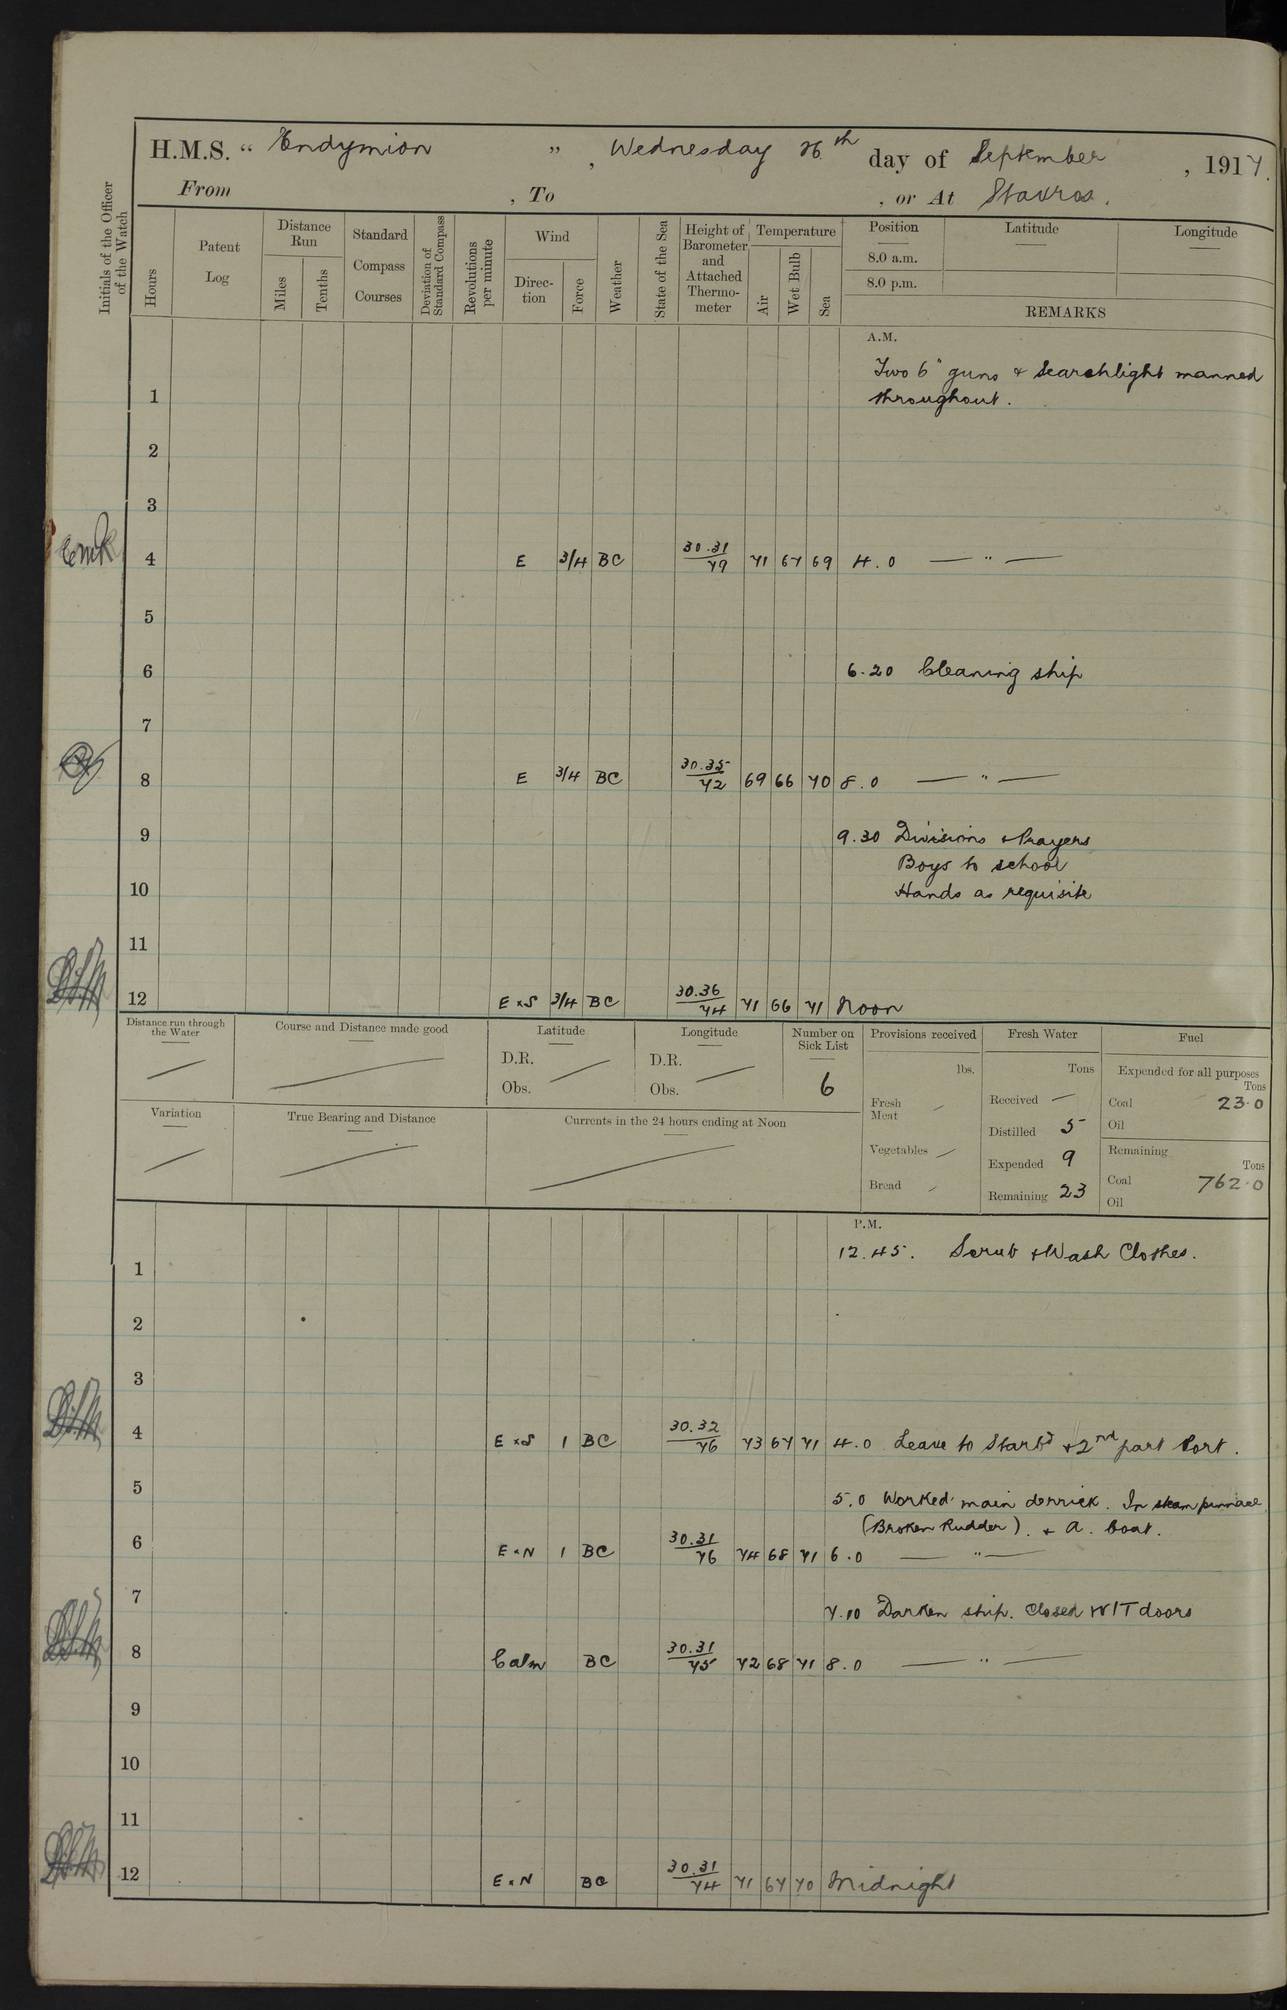 H.M.S. “ Endymion ” , Wednesday 26th day of September , 1917.
From , To , or At Stavros.
Initials of the Officer of the Watch
Hours
Patent Log
Distance Run
Miles
Tenths
Standard Compass Courses
Deviation of Standard Compass
Revolutions per minute
Wind
Direc-tion
Force
Weather
State of the Sea
Height of Barometer and Attached Thermo-meter
Temperature
Air
Wet Bulb
Sea
Position
8.0 a.m.
8.0 p.m.
Latitude
Longitude
REMARKS
A.M.
Two 6" guns & Searchlight manned
throughout.
1
2
3
4 E 3/4 BC 30.31/79 71 67 69 4.0 — " —
5
6 6.20 Cleaning ship
7
8 E 3/4 BC 30.35/72 69 66 70 8.0 — " —
9 9.30 Divisions & Prayers
Boys to school
10 Hands as requisite
11
12 E x S 3/4 BC 30.36/74 71 66 71 Noon
Distance run through the Water
Course and Distance made good
Latitude
D.R.
Obs.
Longitude
D.R.
Obs.
Number on Sick List
6
Provisions received
lbs.
Fresh Meat
Vegetables
Bread
Fresh Water
Tons
Received —
Distilled 5
Expended 9
Remaining 23
Fuel
Expended for all purposes
Tons
Coal 23.0
Oil
Remaining
Tons
Coal 762.0
Oil
Variation
True Bearing and Distance
Currents in the 24 hours ending at Noon
P.M.
12.45. Scrub & Wash Clothes.
1
2
3
4 E x S 1 BC 30.32/76 73 67 71 4.0 Leave to Starbd & 2nd part Port.
5 5.0 Worked main derrick. In steam pinnace
(Broken Rudder). & a. boat.
6 E x N 1 BC 30.31/76 74 68 71 6.0 — " —
7 7.10 Darken ship. Closed W/T doors
8 Calm BC 30.31/75 72 68 71 8.0 — " —
9
10
11
12 E x N BC 30.31/74 71 67 70 Midnight